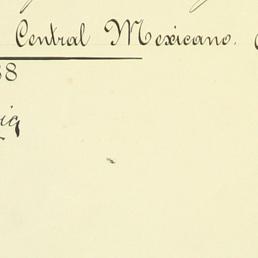 Central Mexicano.
8